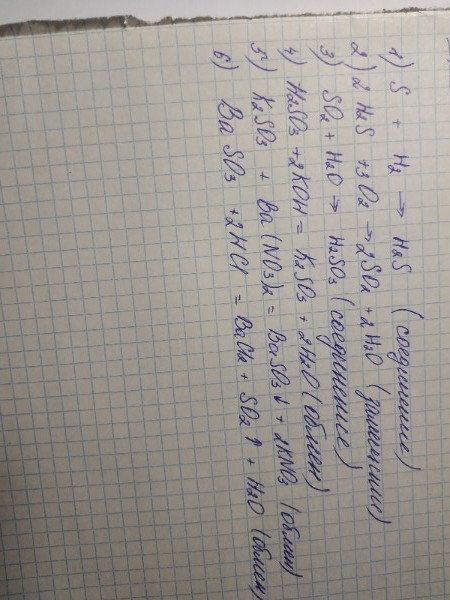 1) S + H2 → H2S (соединение)
2) 2 H2S + 3O2 → 2SO2 + 2H2O (замещение)
3) SO2 + H2O → H2SO3 (соединение)
4) H2SO3 + 2KOH = K2SO3 + 2H2O (обмен)
5) K2SO3 + Ba(NO3)2 = BaSO3↓ + 2KNO3 (обмен)
6) BaSO3 + 2HCl = BaCl2 + SO2↑ + H2O (обмен)